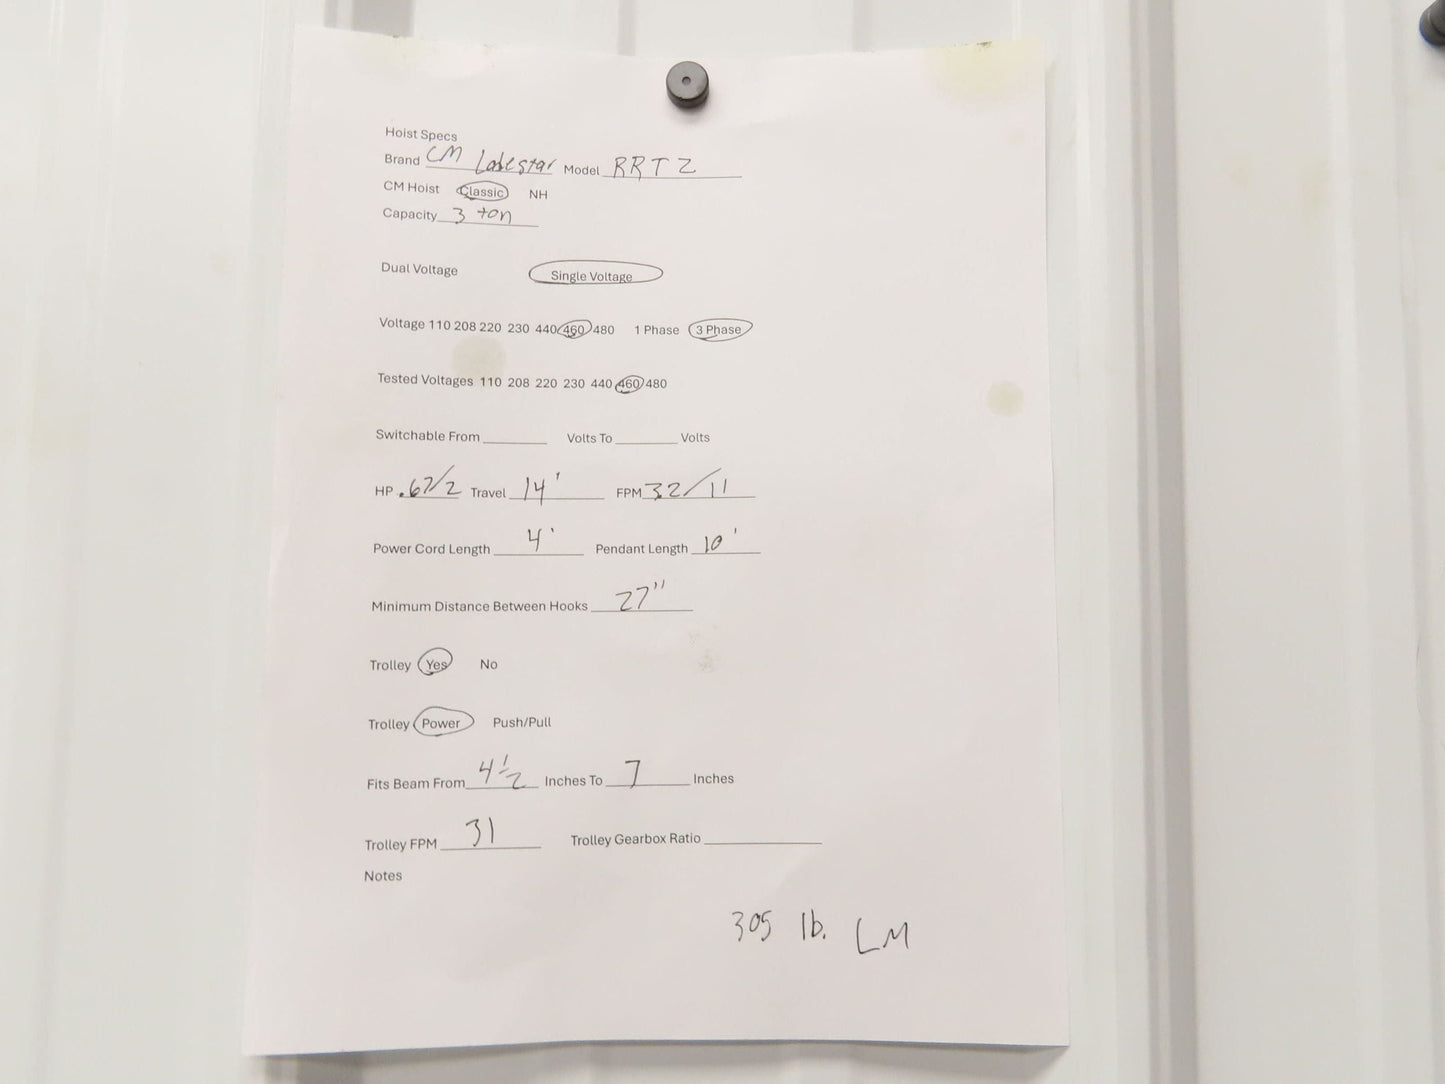 Hoist Specs
Brand CM Lodestar Model RRT2
CM Hoist Classic NH
Capacity 3 ton
Dual Voltage Single Voltage
Voltage 110 208 220 230 440 460 480 1 Phase 3 Phase
Tested Voltages 110 208 220 230 440 460 480
Switchable From ______ Volts To ______ Volts
HP .67/2 Travel 14' FPM 32/11
Power Cord Length 4' Pendant Length 10'
Minimum Distance Between Hooks 27"
Trolley Yes No
Trolley Power Push/Pull
Fits Beam From 4 1/2 Inches To 7 Inches
Trolley FPM 31 Trolley Gearbox Ratio ______
Notes
305 lb. LM